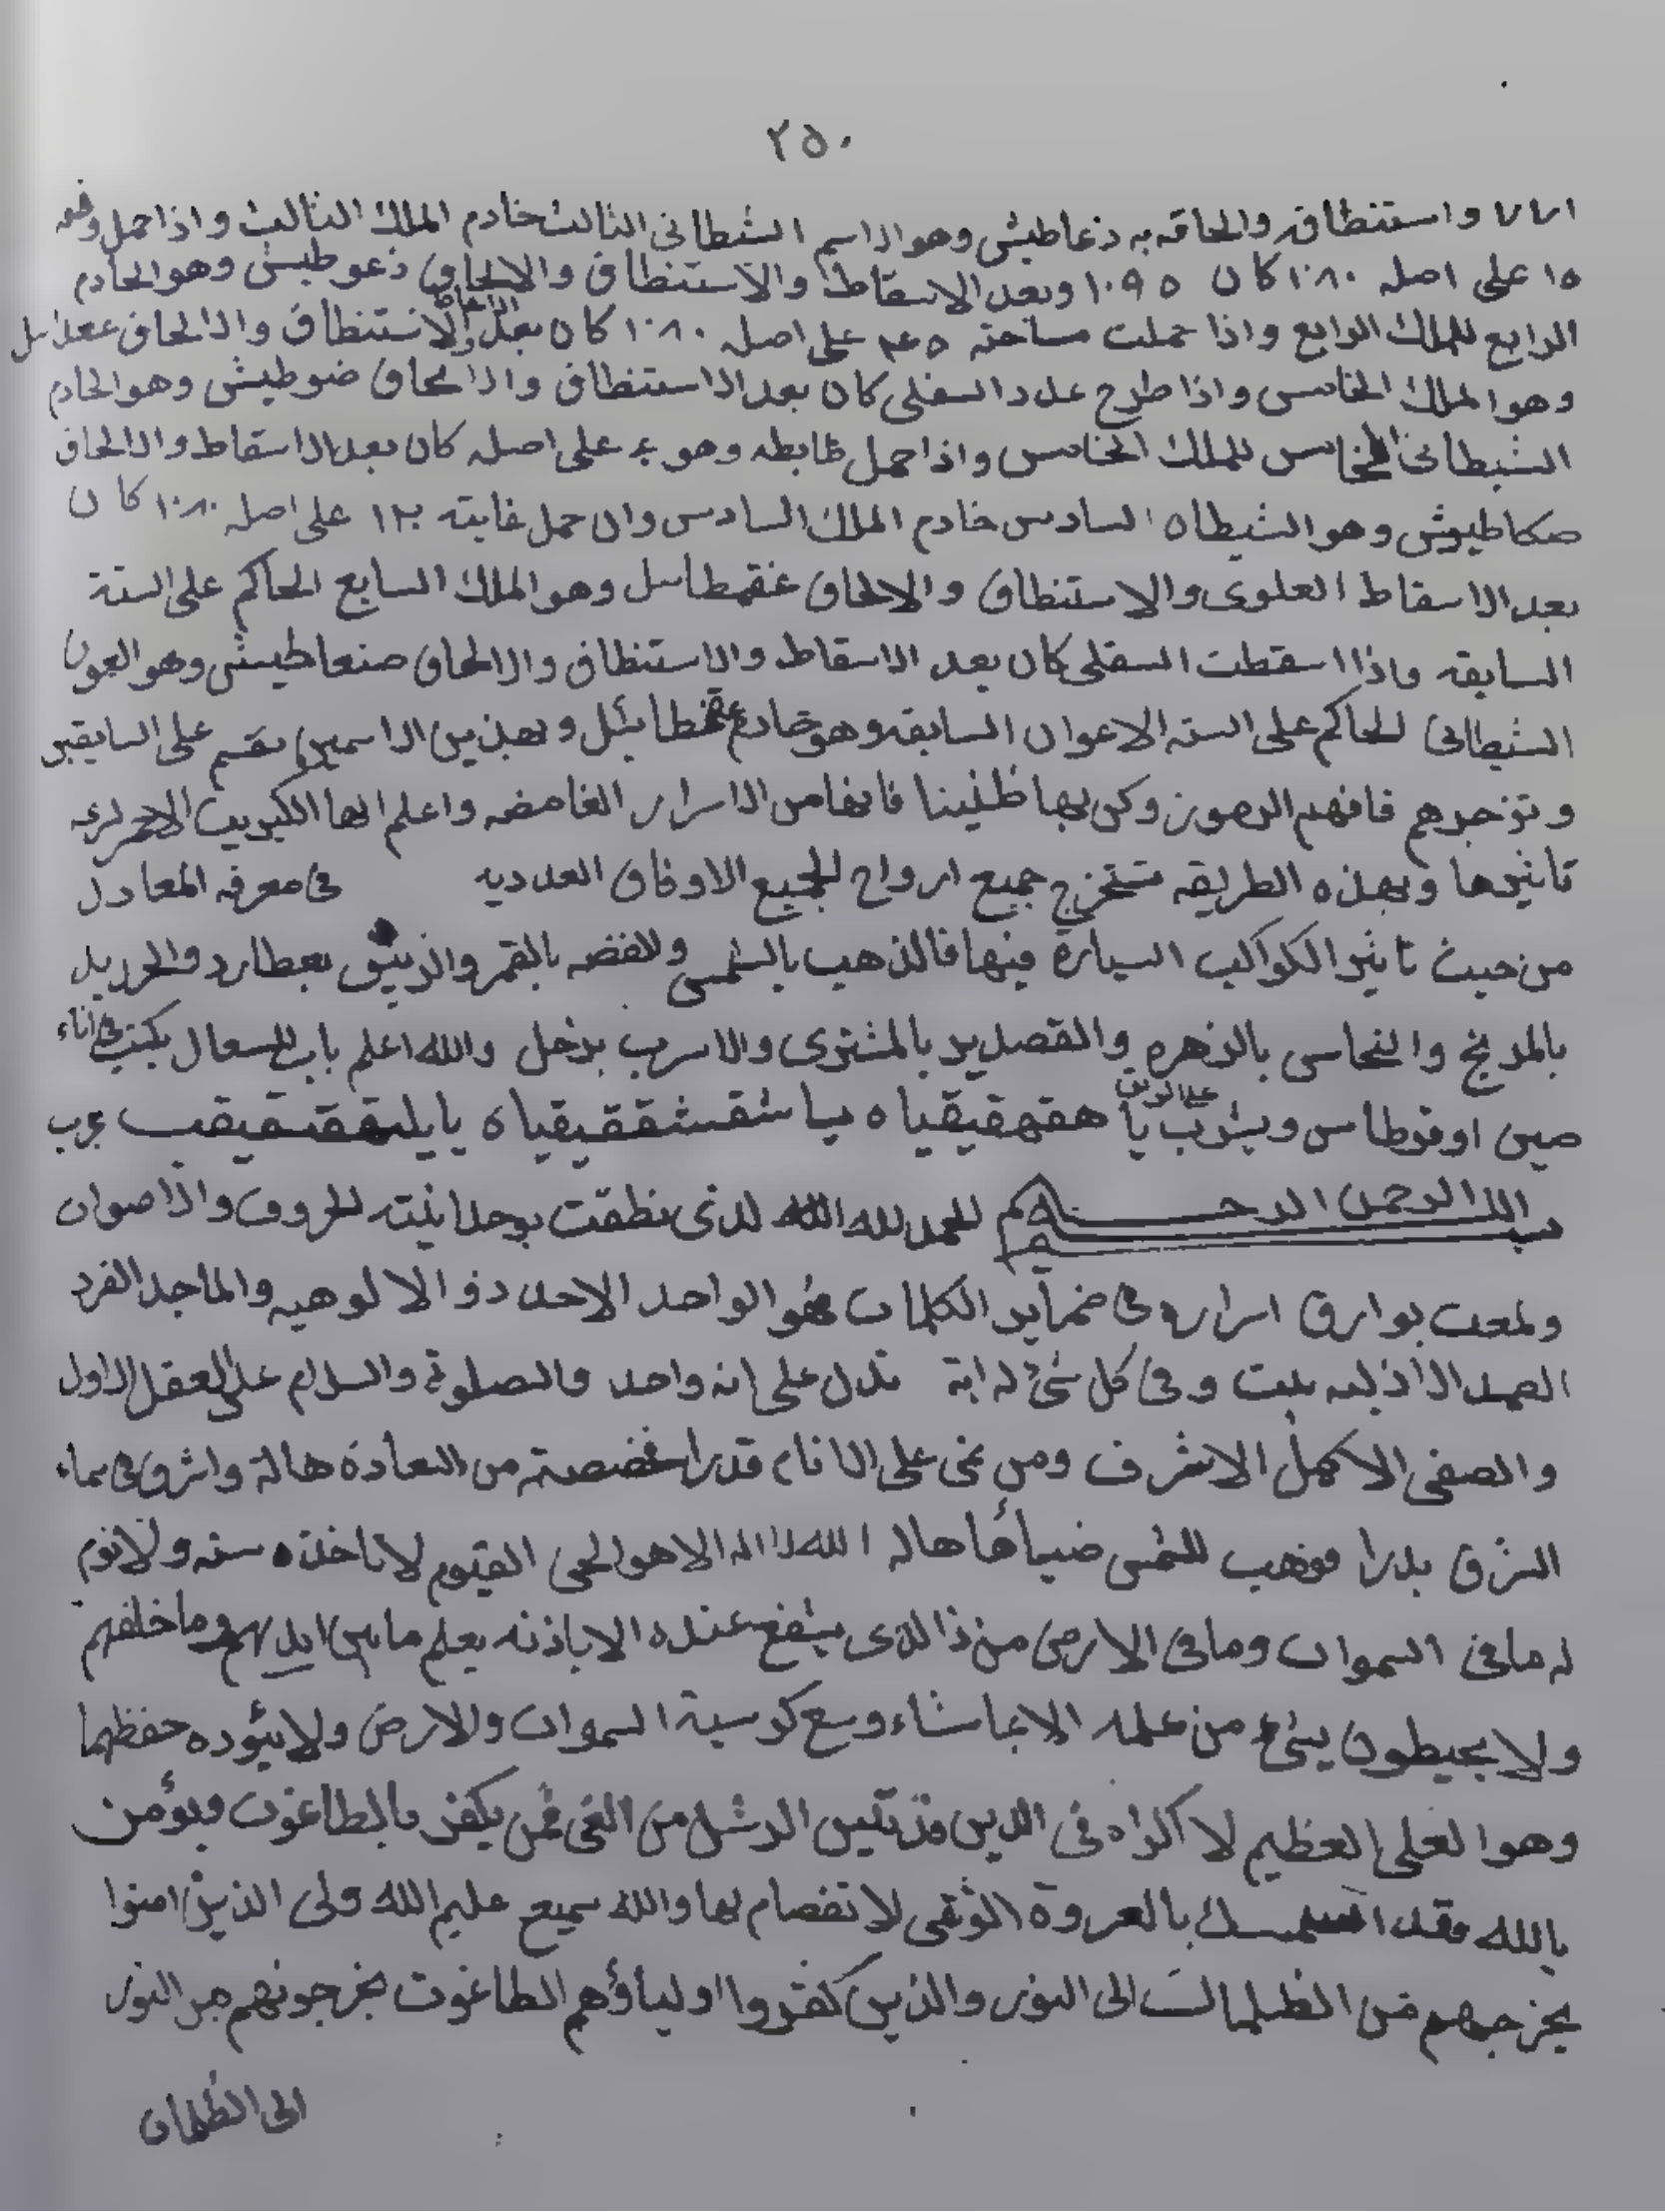 ٢٥٠
واستنطاقه والحاقه به ذعاطيش وهو الاسم الشيطانى الثالث خادم الملك الثالث واذا حمل وفقه
١٥ على اصله ١٠٨٠ كان ١٠٩٥ وبعد الاسقاط والاستنطاق والالحاق ذعوطيش وهو الخادم
الرابع للملك الرابع واذا حملت مساحته على اصله ١٠٨٠ كان بعد الاسقاط والاستنطاق والالحاق
وهو الملك الخامس واذا طرح عدد السفلى كان بعد الاستنطاق والالحاق ضوطيش وهو الخادم
الشيطانى الخامس للملك الخامس واذا حمل ضابطه وهو على اصله كان بعد الاسقاط والالحاق
صكاطيوش وهو الشيطاه السادس خادم الملك السادس وان حمل غايته على اصله ١٠٨٠ كان
بعد الاسقاط العلوى والاستنطاق والالحاق غنقمطاسل وهو الملك السابع الحاكم على الستة
السابقه واذا اسقطت السفلى كان بعد الاسقاط والاستنطاق والالحاق صنعاطيش وهو العون
الشيطانى الحاكم على الستة الاعوان السابقه وهو خادم وبهذين الاسمين تقسم على السابقين
وتزجرهم فافهم الرموز وكن بها ظنينا فانها من الاسرار الغامضه واعلم انها الكبريت الاحمر
تاثيرها وبهذه الطريقه تستخرج جميع ارواح لجميع الاوفاق العدديه في معرفه المعادل
من حيث تاثير الكواكب السيارة فيها فالذهب بالشمس وللفضه بالقمر والزيبق بعطارد والحديد
بالمريخ والنحاس بالزهره والقصدير بالمشترى والاسرب بزحل والله اعلم باب للسعال يكتب في اناء
صينى او قرطاس ويشرب على الريق يا هقهقيقياه يا شقشقيقياه يا بليقققيقب مجرب
بسم الله الرحمن الرحيم الحمد لله الله لذى نطقت بوحدانيته الحروف والاصوات
ولمعت بوارق اسراره في ضماير الكلمات فهو الواحد الاحد ذو الالوهيه والماجد الفرد
الصمد الازليه بيت وفى كل شئ له اية تدل على انه واحد والصلوة والسلام على العقل الاول
والصفى الاكمل الاشرف ومن على الانام قدرا من السعادة هالة واشرق فى سماء
الشرق بدرا فوهب للشمس ضياءها هاله الله لا اله الا هو الحى القيوم لا تاخذه سنه ولا نوم
له ما فى السموات وما فى الارض من ذا الذى يشفع عنده الا باذنه يعلم ما بين ايديهم وما خلفهم
ولا يحيطون بشئ من علمه الا بما شاء وسع كرسيه السموات والارض ولا يئوده حفظهما
وهو العلى العظيم لا اكراه فى الدين قد تبين الرشد من الغى فمن يكفر بالطاغوت ويؤمن
بالله فقد استمسك بالعروة الوثقى لا انفصام لها والله سميع عليم الله ولى الذين امنوا
يخرجهم من الظلمات الى النور والذين كفروا اوليأؤهم الطاغوت يخرجونهم من النور
الى الظلمات